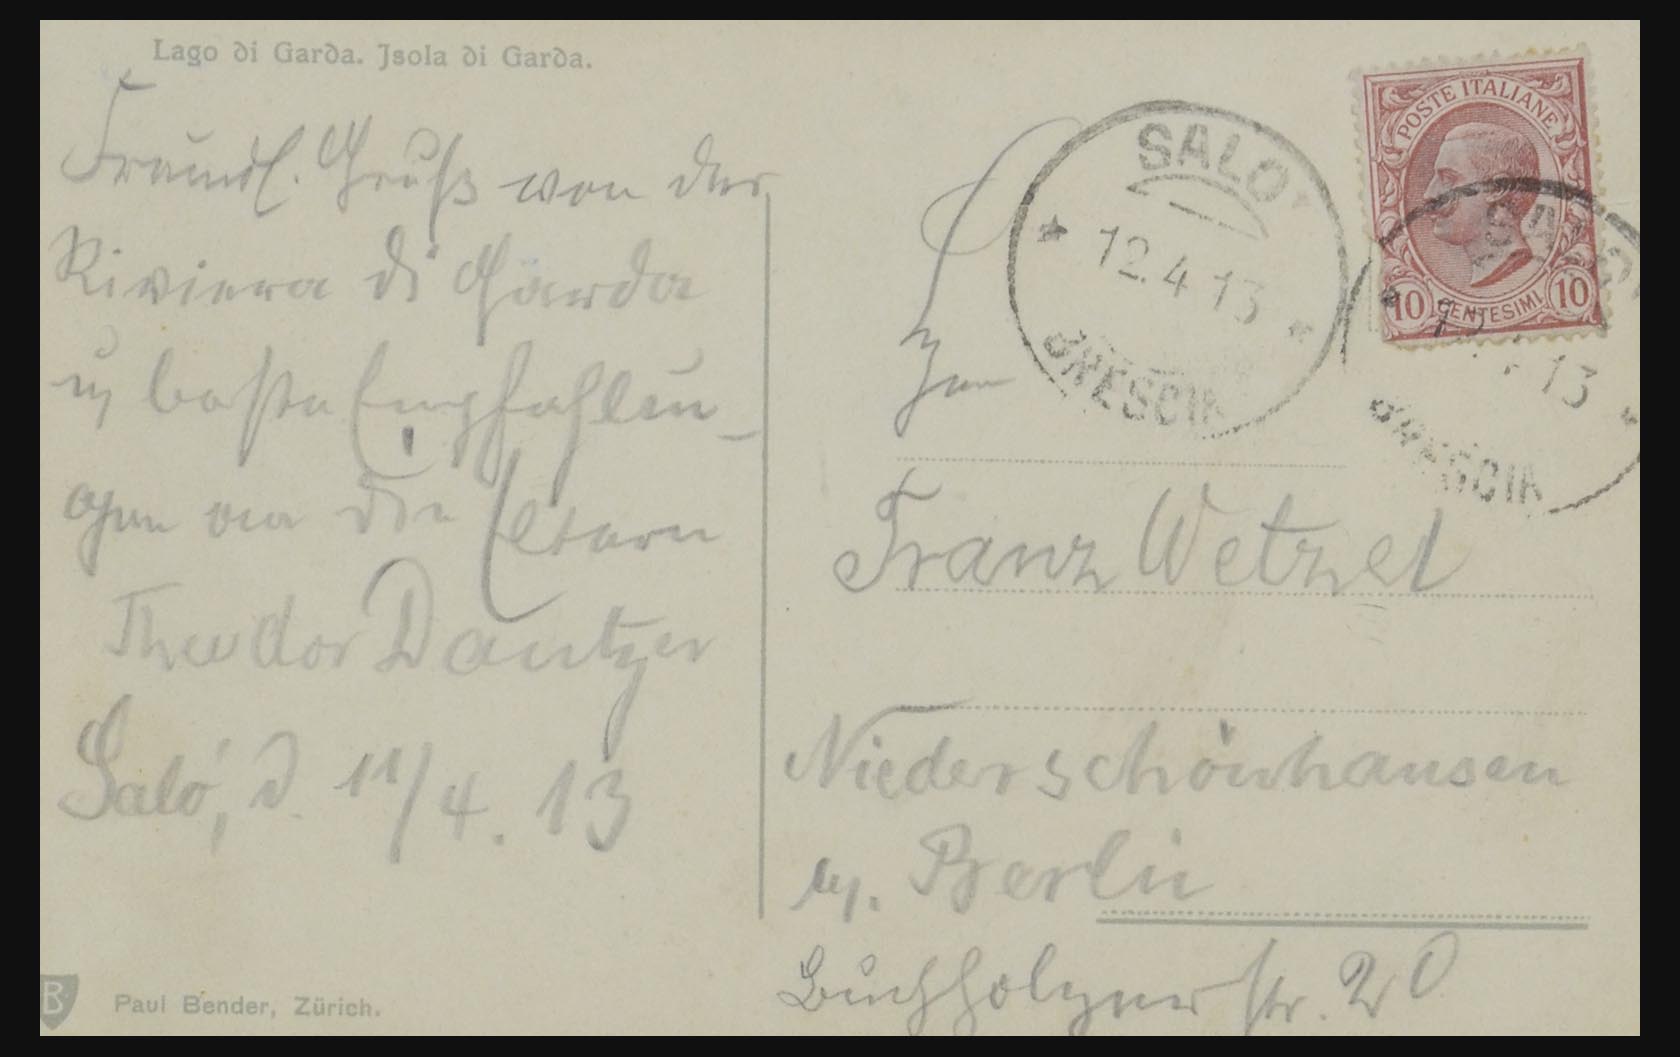 Lago di Garda. Jsola di Garda.
Freundl. Gruß von der
Riviera di Garda
u. beste Empfehlun-
gen an die Eltern
Theodor Dantzer
Saló, d. 11/4. 13
Paul Bender, Zürich.
B
POSTE ITALIANE
10 CENTESIMI 10
SALO
12.4 13
BRESCIA
SALO
13
BRESCIA
Franz Wetzel
Niederschönhausen
Berlin
Buchholzerstr. 20